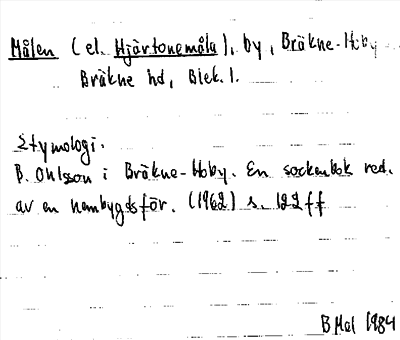 Målen (el. Hjärtonemåla), by, Bräkne-Hoby
Bräkne hd, Blek. l.
Etymologi.
B. Ohlsson i Bräkne-Hoby. En sockenbok red.
av en hembygdsför. (1962) s. 122 ff
B Mal 1984